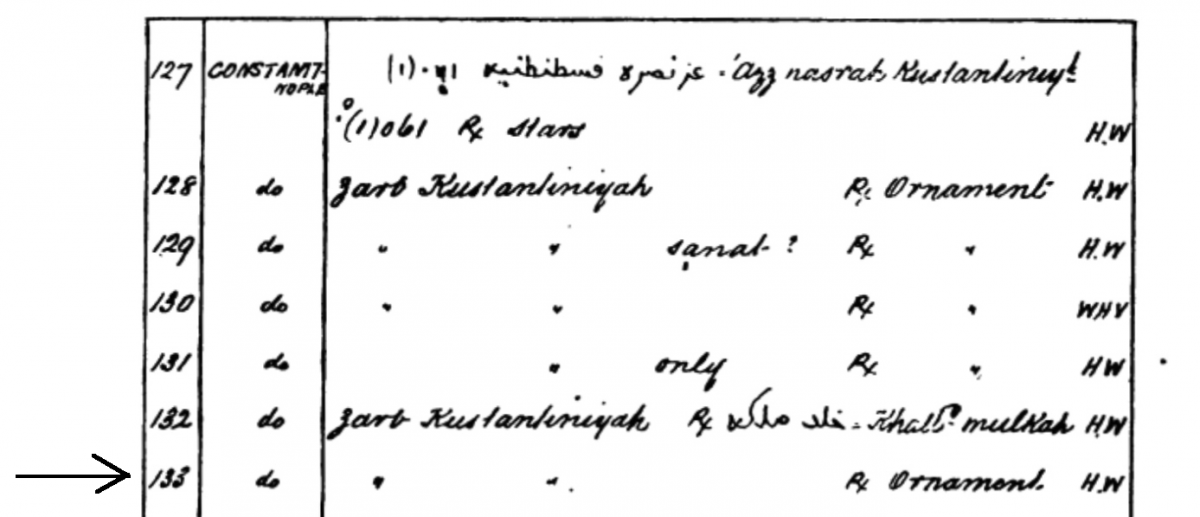 127 CONSTANTI- (1)٠٦١ عز نصره قسطنطنية - 'Azz nasrat Kustantiniyt
NOPLE
(1)061 Rx stars H.W
128 do Zarb Kustantiniyah Rx Ornament H.W
129 do " " sanat ? Rx " H.W
130 do " " Rx " WHV
131 do " only Rx " HW
132 do Zarb Kustantiniyah Rx خلد ملكه - Khald mulkah H.W
133 do " " . Rx Ornament. H.W